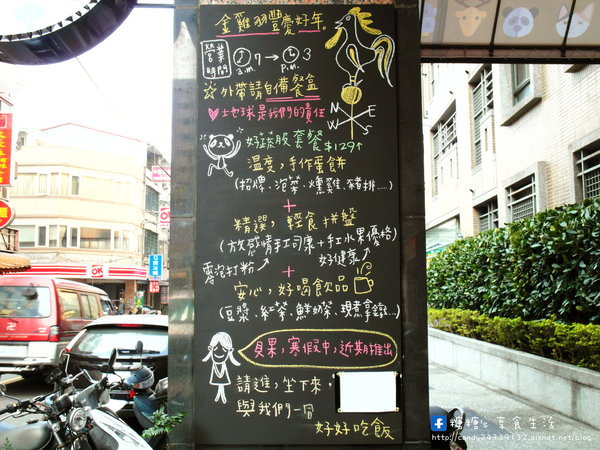 金雞羽豐慶好年。
營業時間 7 → 3
a.m. p.m.
外帶請自備餐盒
土也球是我們的責任
好蔬服套餐 $129↑
溫度,手作蛋餅
(招牌、泡菜、燻雞、豬排......)
+
精選,輕食拼盤
(放感情手工司康+紅水果優格)
零泡打粉 好健菜
+
安心,好喝飲品
(豆漿、紅茶、鮮奶茶、現煮拿鐵...)
貝果,寒假中,近期推出
請進,坐下來,
與我們一同
好好吃飯
N
W E
S
OK
糖糖's 享食生活